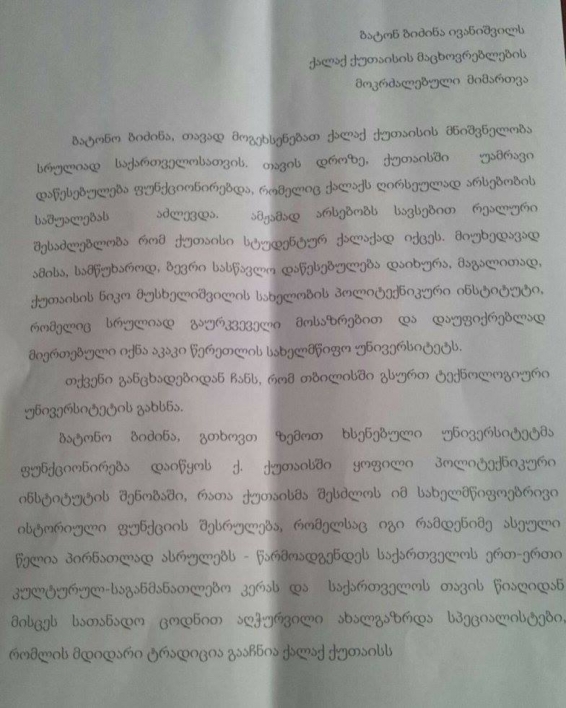 ბატონ ბიძინა ივანიშვილს
ქალაქ ქუთაისის მაცხოვრებლების
მოკრძალებული მიმართვა
ბატონო ბიძინა, თავად მოგეხსენებათ ქალაქ ქუთაისის მნიშვნელობა
სრულიად საქართველოსათვის. თავის დროზე, ქუთაისში უამრავი
დაწესებულება ფუნქციონირებდა, რომელიც ქალაქს ღირსეულად არსებობის
საშუალებას აძლევდა. ამჟამად არსებობს სავსებით რეალური
შესაძლებლობა რომ ქუთაისი სტუდენტურ ქალაქად იქცეს. მიუხედავად
ამისა, სამწუხაროდ, ბევრი სასწავლო დაწესებულება დაიხურა, მაგალითად,
ქუთაისის ნიკო მუსხელიშვილის სახელობის პოლიტექნიკური ინსტიტუტი,
რომელიც სრულიად გაურკვეველი მოსაზრებით და დაუფიქრებლად
მიერთებული იქნა აკაკი წერეთლის სახელმწიფო უნივერსიტეტს.
თქვენი განცხადებიდან ჩანს, რომ თბილისში გსურთ ტექნოლოგიური
უნივერსიტეტის გახსნა.
ბატონო ბიძინა, გთხოვთ ზემოთ ხსენებული უნივერსიტეტმა
ფუნქციონირება დაიწყოს ქ. ქუთაისში ყოფილი პოლიტექნიკური
ინსტიტუტის შენობაში, რათა ქუთაისმა შესძლოს იმ სახელმწიფოებრივი
ისტორიული ფუნქციის შესრულება, რომელსაც იგი რამდენიმე ასეული
წელია პირნათლად ასრულებს - წარმოადგენდეს საქართველოს ერთ-ერთი
კულტურულ-საგანმანათლებო კერას და საქართველოს თავის წიაღიდან
მისცეს სათანადო ცოდნით აღჭურვილი ახალგაზრდა სპეციალისტები,
რომლის მდიდარი ტრადიცია გააჩნია ქალაქ ქუთაისს